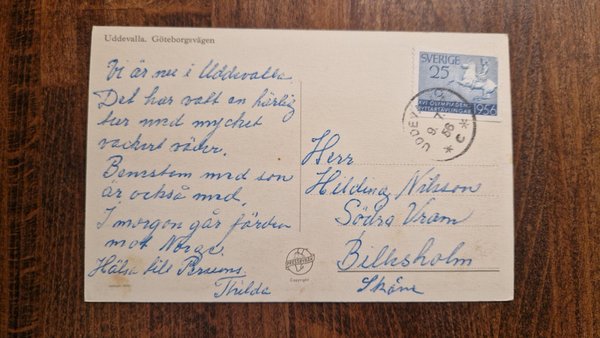 Uddevalla. Göteborgsvägen
Vi är nu i Uddevalla.
Det har valt en härlig
tur med mycket
vackert väder.
med son
är också med.
I morgon går färden
mot Norge.
Hälsa till Perssons.
Thilda
SVERIGE
25
XVI OLYMPIADEN
RYTTARTÄVLINGAR
1956
UDDEVALLA
9.7.
56
* C *
Herr
Hilding Nilsson
Södra Vram
Billesholm
Skåne
PRESSBYRÅN
Copyright